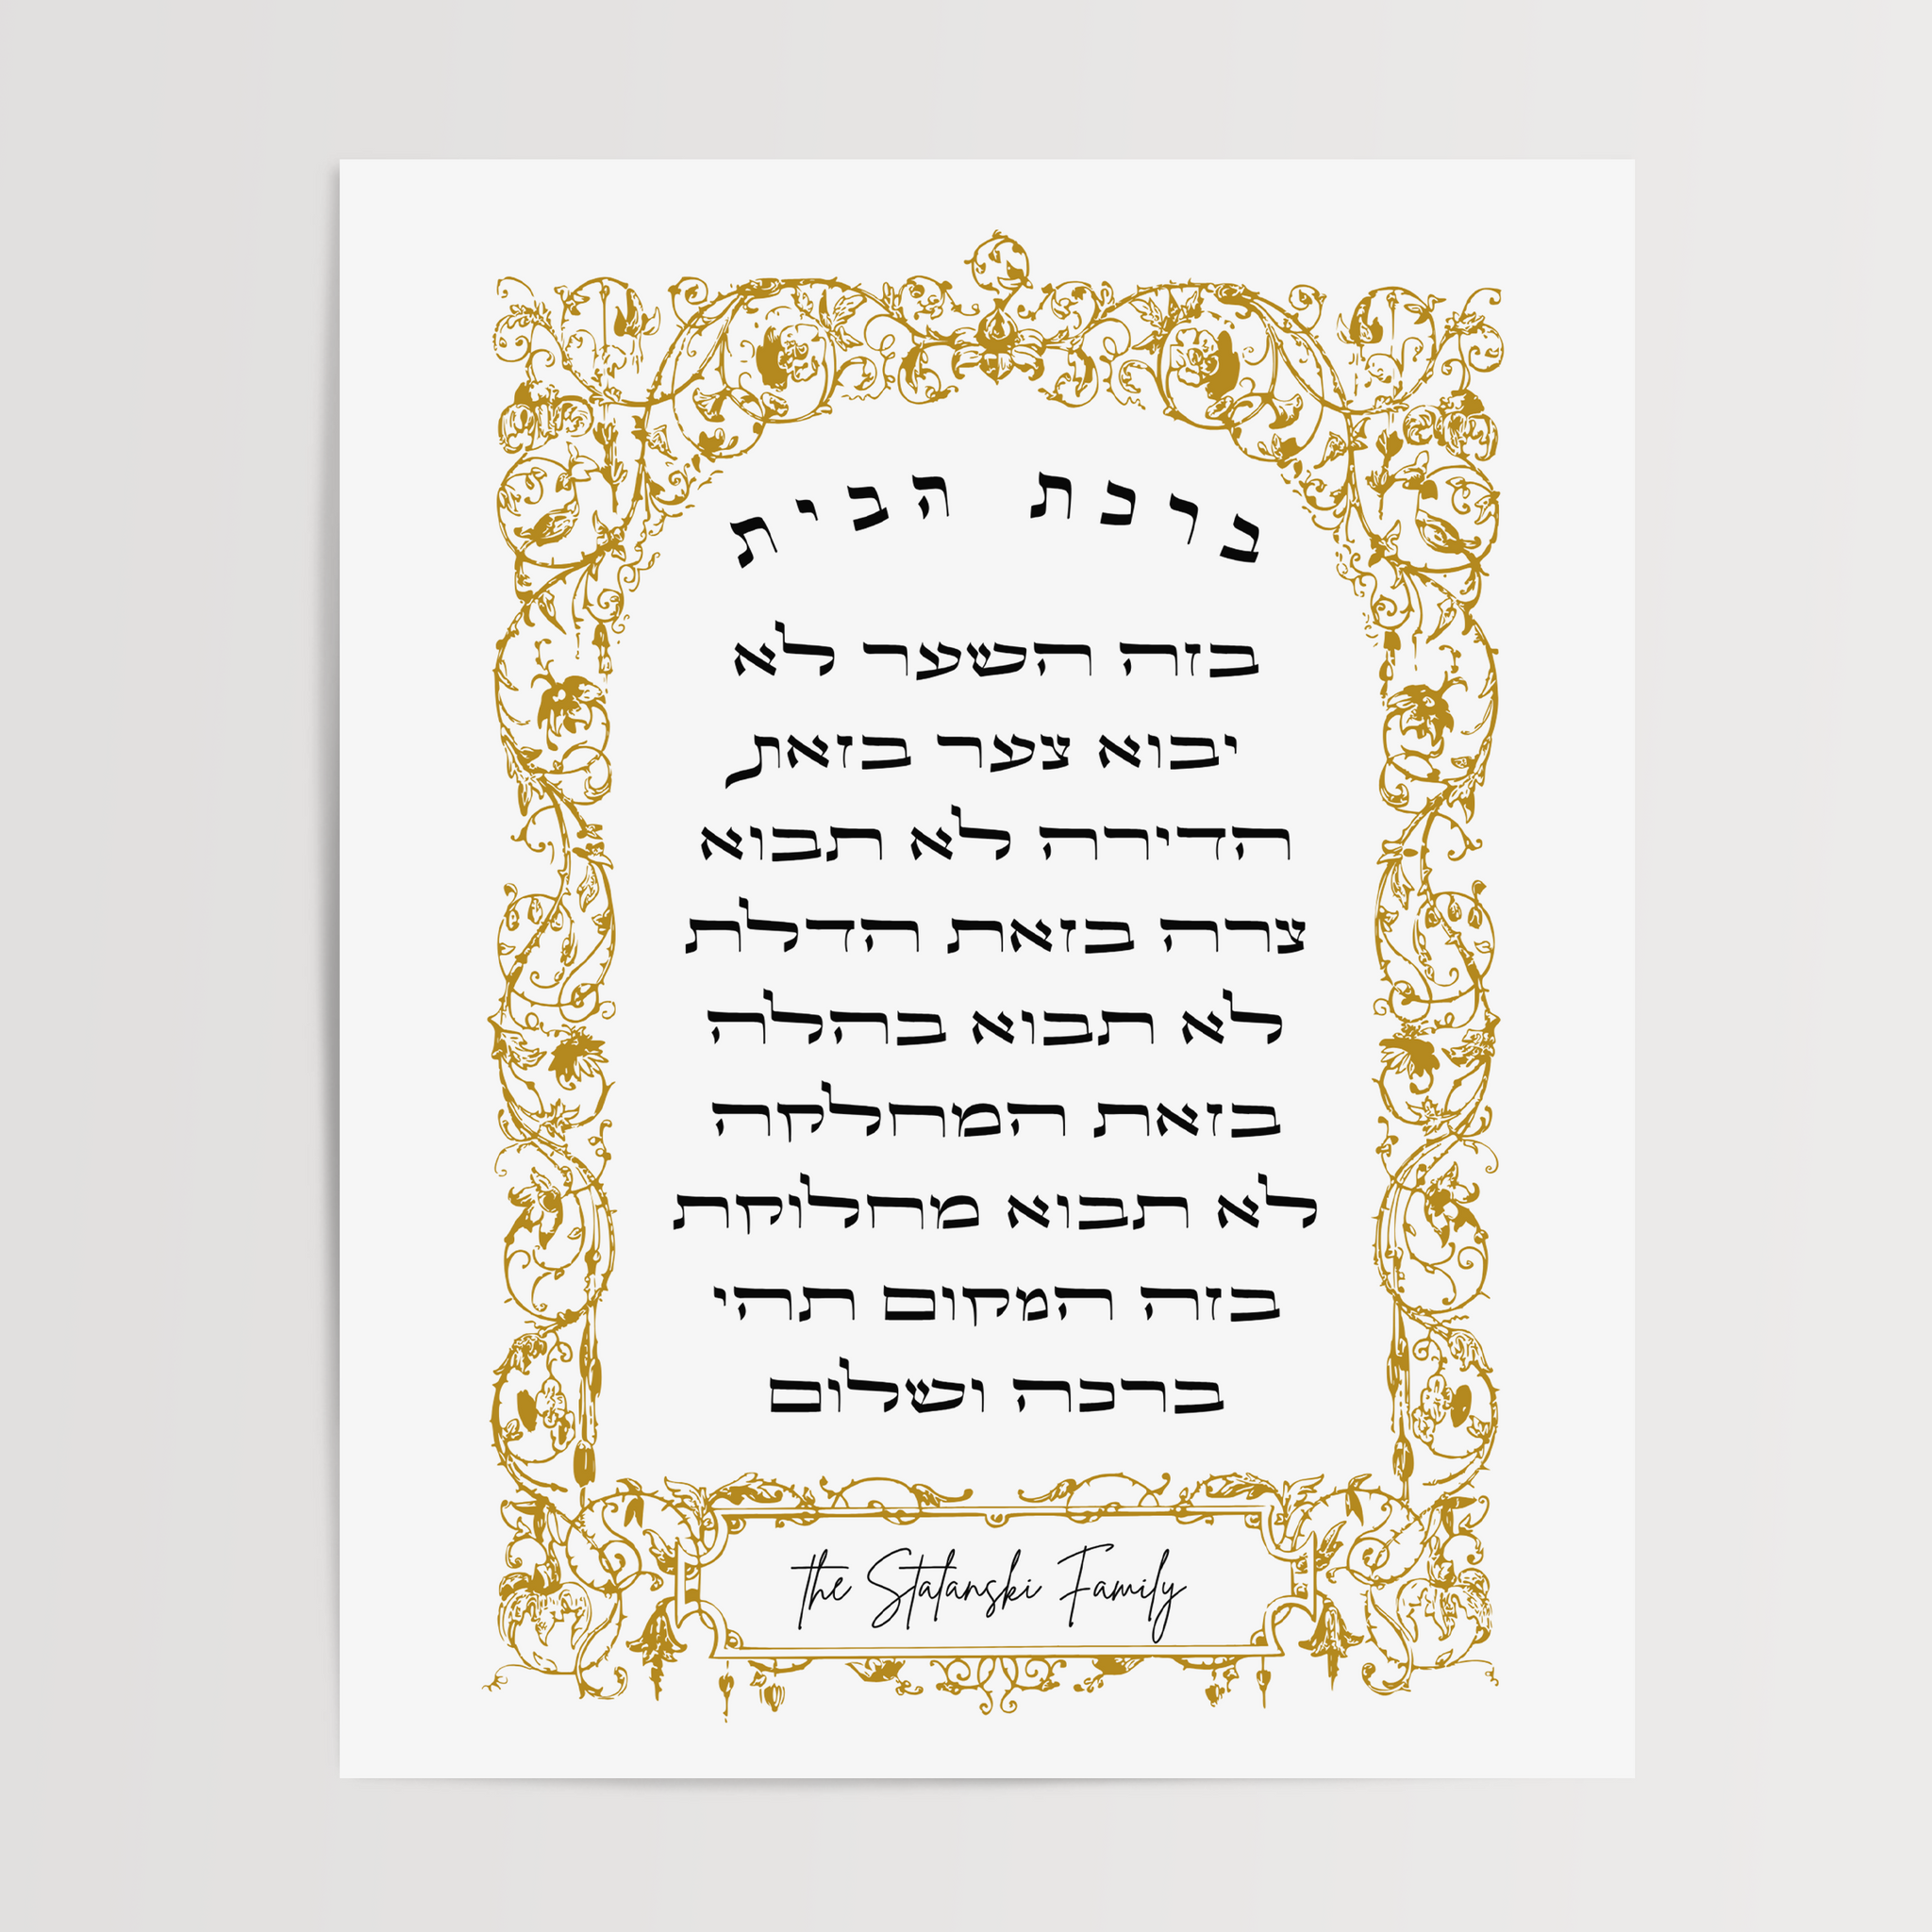 ברכת הבית
בזה השער לא
יבוא צער בזאת
הדירה לא תבוא
צרה בזאת הדלת
לא תבוא בהלה
בזאת המחלקה
לא תבוא מחלוקת
בזה המקום תהי
ברכה ושלום
the Statanski Family